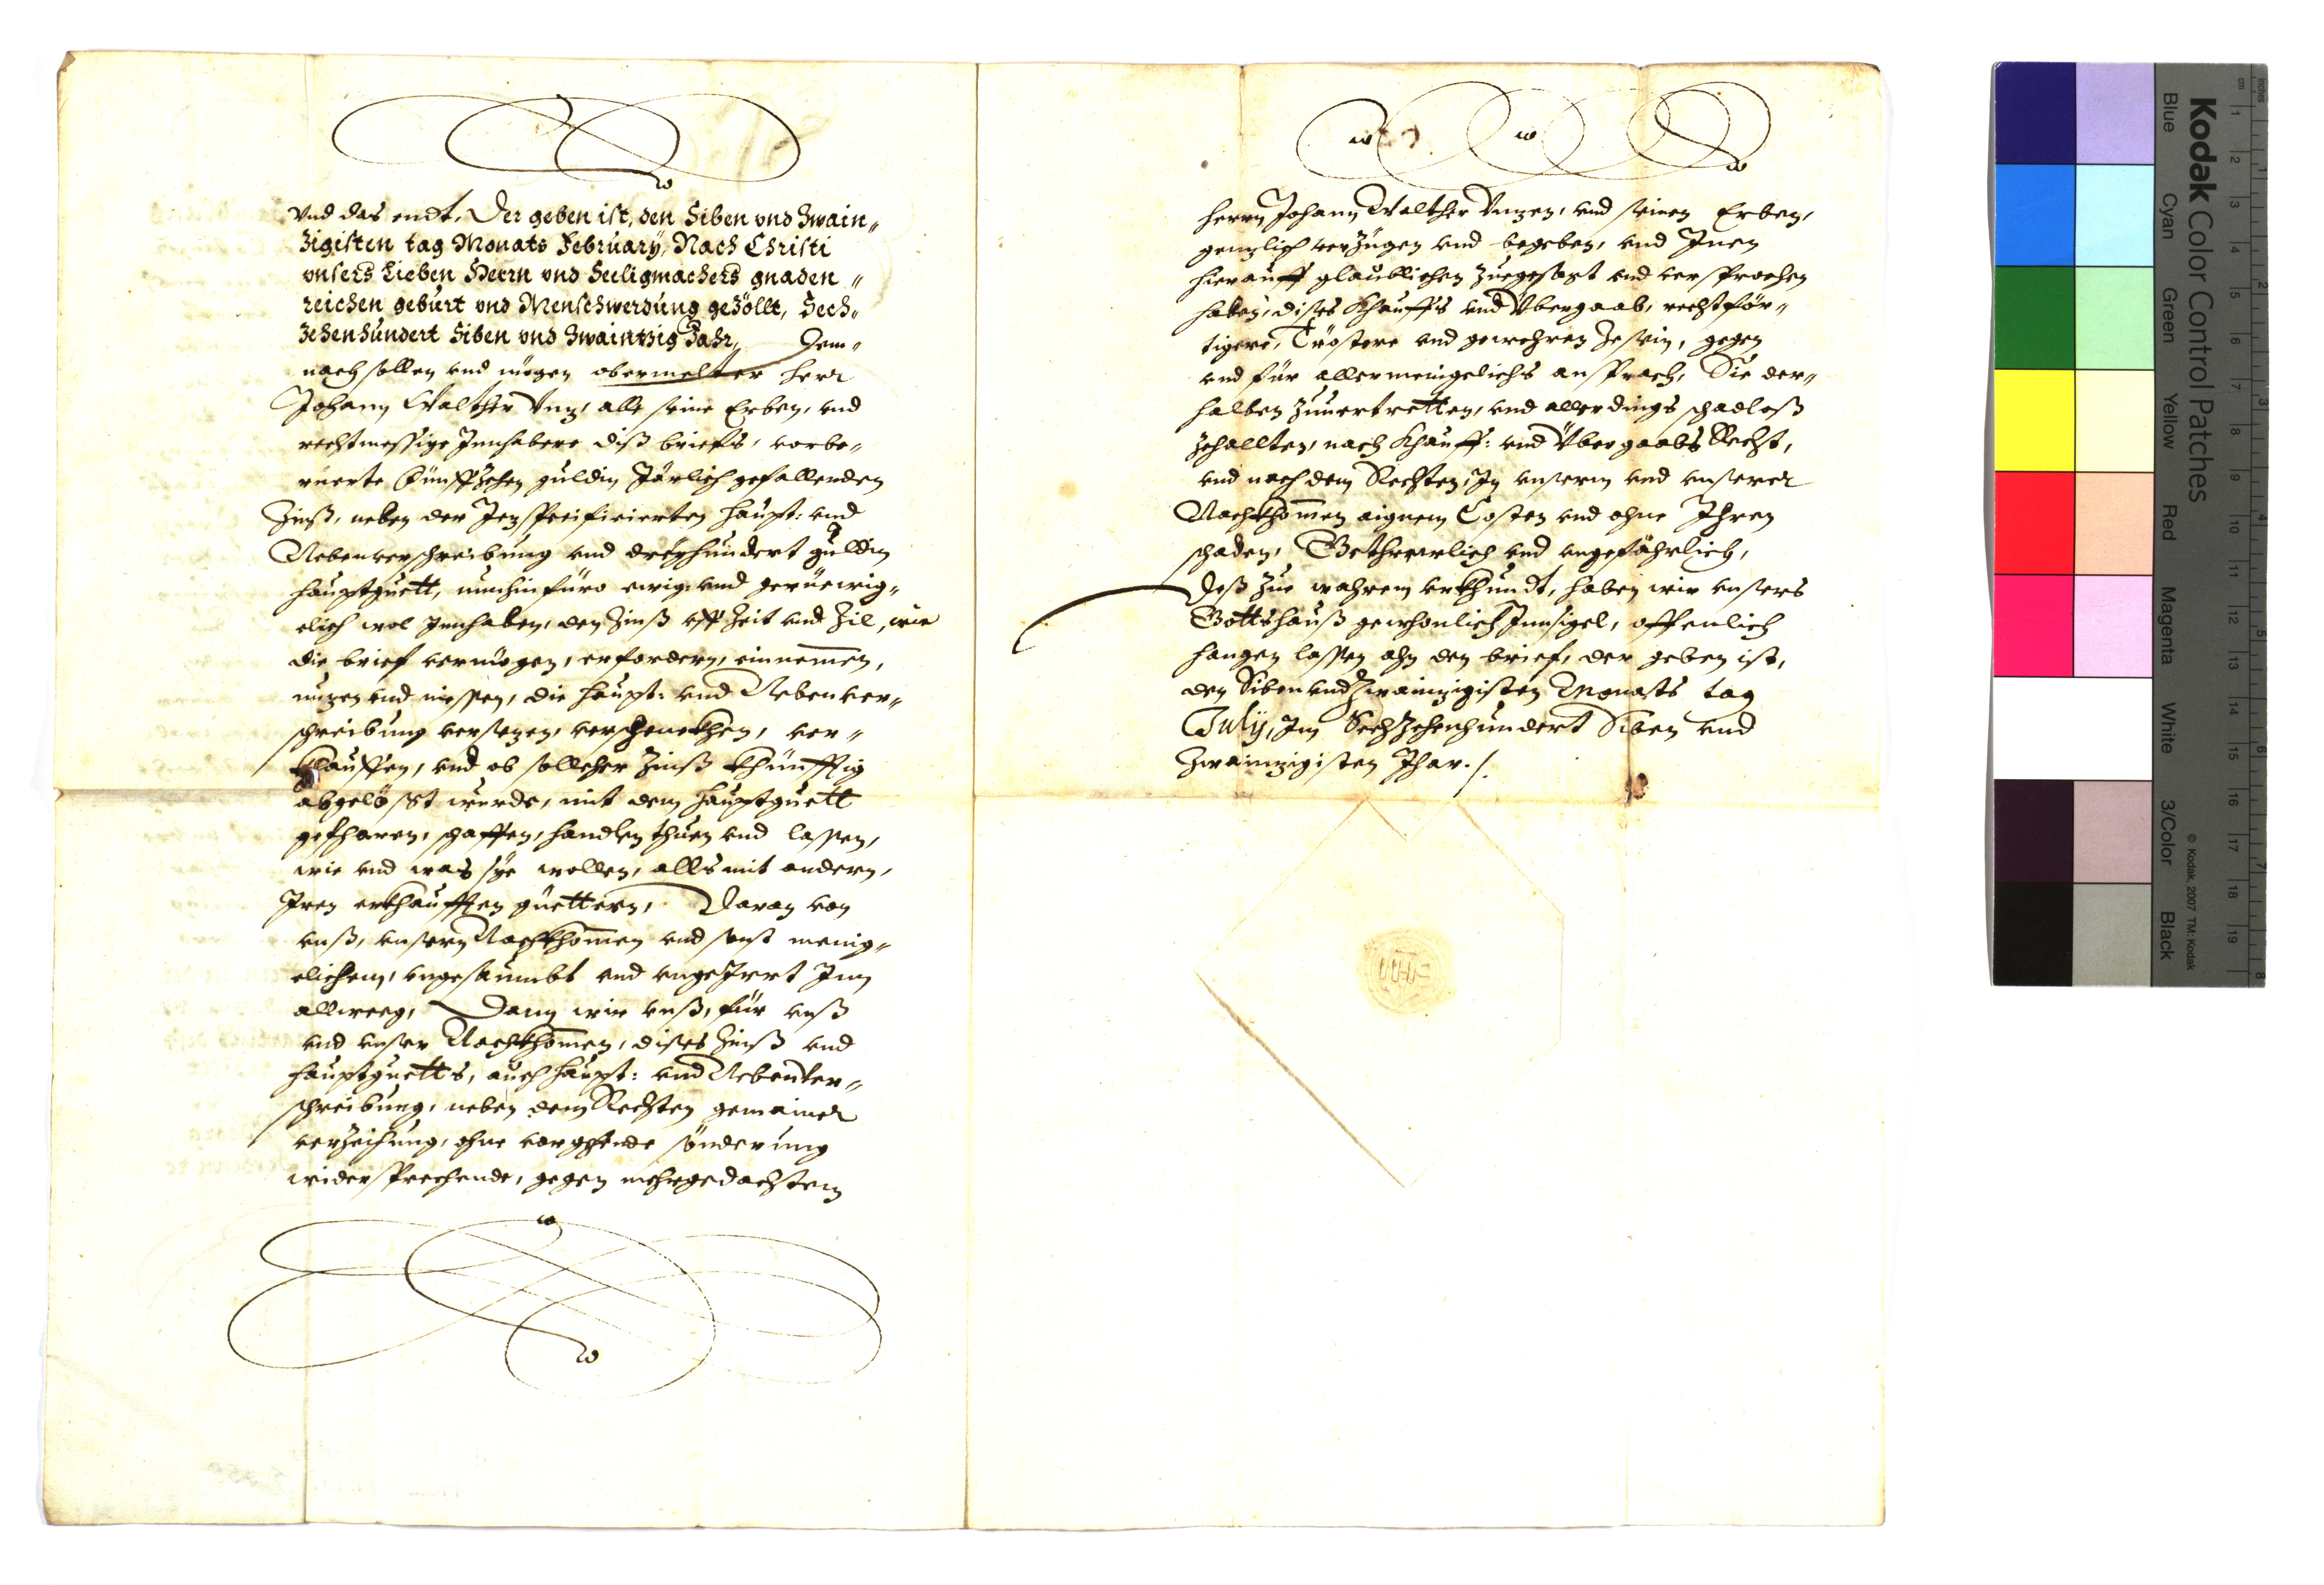 vnd das endt, Der geben ist, den Siben vnd Zwain„
Zigisten tag Monats February, Nach Christi
vnsers Lieben Herrn vnd Seeligmachers gnaden„
reichen geburt vnd Menschwerdung gezöllt, Sech„
Zehenhundert Siben vnd Zwaintzig Jahr„ Dem„
nach sollen vnd mögen obermelter Herr
Johann Walther Vnz, alle seine Erben, vnd
rechtmessige Innhabere diß briefs, vorbe„
rüerte Fünffzehen guldin Järlich gefallenden
Zinß, neben der Jez specificierten Haupt: vnd
Nebenverschreibung vnd dreyhundert guldin
Hauptguett, nun hinfüro ewig: vnd gerüewig„
clich wol Innhaben, den Zinß vff Zeit vnd Zil, wie
die brief vermögen, erfordern, einnemen,
nuzen vnd niessen, die Haupt: vnd Nebenver„
schreibung versezen, verschenckhen, ver„
khauffen, vnd ob sollcher Zinß khünfftig
abgelößt wurde, mit dem Hauptguett
gefharen, schaffen, handlen thuen vnd lassen,
wie vnd was sye wollen, alls mit andern,
Iren erkhaufften güettern, Daran von
vnß, vnsern Nachkhomen vnd sonst menig„
clichem, vngesaumbt vnd vngeJrrt Inn
allweeg, Dann wir vnß, für vnß
vnd vnser Nachkhomen, dises Zinß vnd
Hauptguetts, auch Haupt: vnd Nebenver„
schreibung, neben dem Rechten gemainer
verzeihung, ohne vorgehende sönderung
widersprechende, gegen mehrgedachtem
Herrn Johann Walther Vnzen, vnd seinen Erben,
genzlich verzügen vnd begeben, vnd Inen
hierauff glaublichen zuegesagt vnd versprochen
haben, dises Khauffs vnd Vbergaab, rechtför„
tigere, Tröstere vnd gewehren ze sein, gegen
vnd für allermeingelichs ansprach, Sie der„
halben zuuertretten, vnd allerdings schadloß
zehallten, nach Khauff: vnd Vbergaabs Recht,
vnd nach dem Rechten, In vnserm vnd vnserer
Nachkhomen aignem Costen vnd ohne Ihren
schaden, Gethrewlich vnd vngefährlich,
Deß zue wahrem vrkhundt, haben wir vnsers
Gottshauß gewhonlich Innsigel, offenlich
hangen lassen ahn den brief, der geben ist,
den Siben vnd Zwainzigisten Monats tag
July, Im Sechzehenhundert Siben vnd
Zwainzigisten Jhar./.
Kodak Color Control Patches
Blue Cyan Green Yellow Red Magenta White 3/Color Black
© Kodak, 2007 TM: Kodak
cm 1 2 3 4 5 6 7 8 9 10 11 12 13 14 15 16 17 18 19
inches 1 2 3 4 5 6 7 8